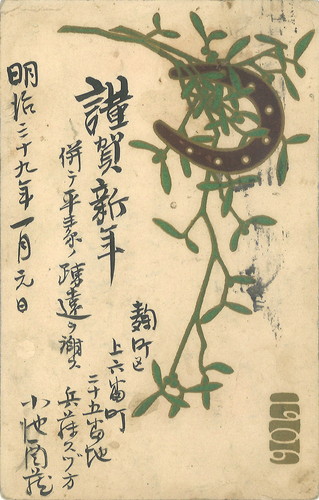 謹賀新年
併テ平素ノ疎遠ヲ謝ス
明治三十九年一月元日
麹町区
上六番町
二十五番地
小池
1906